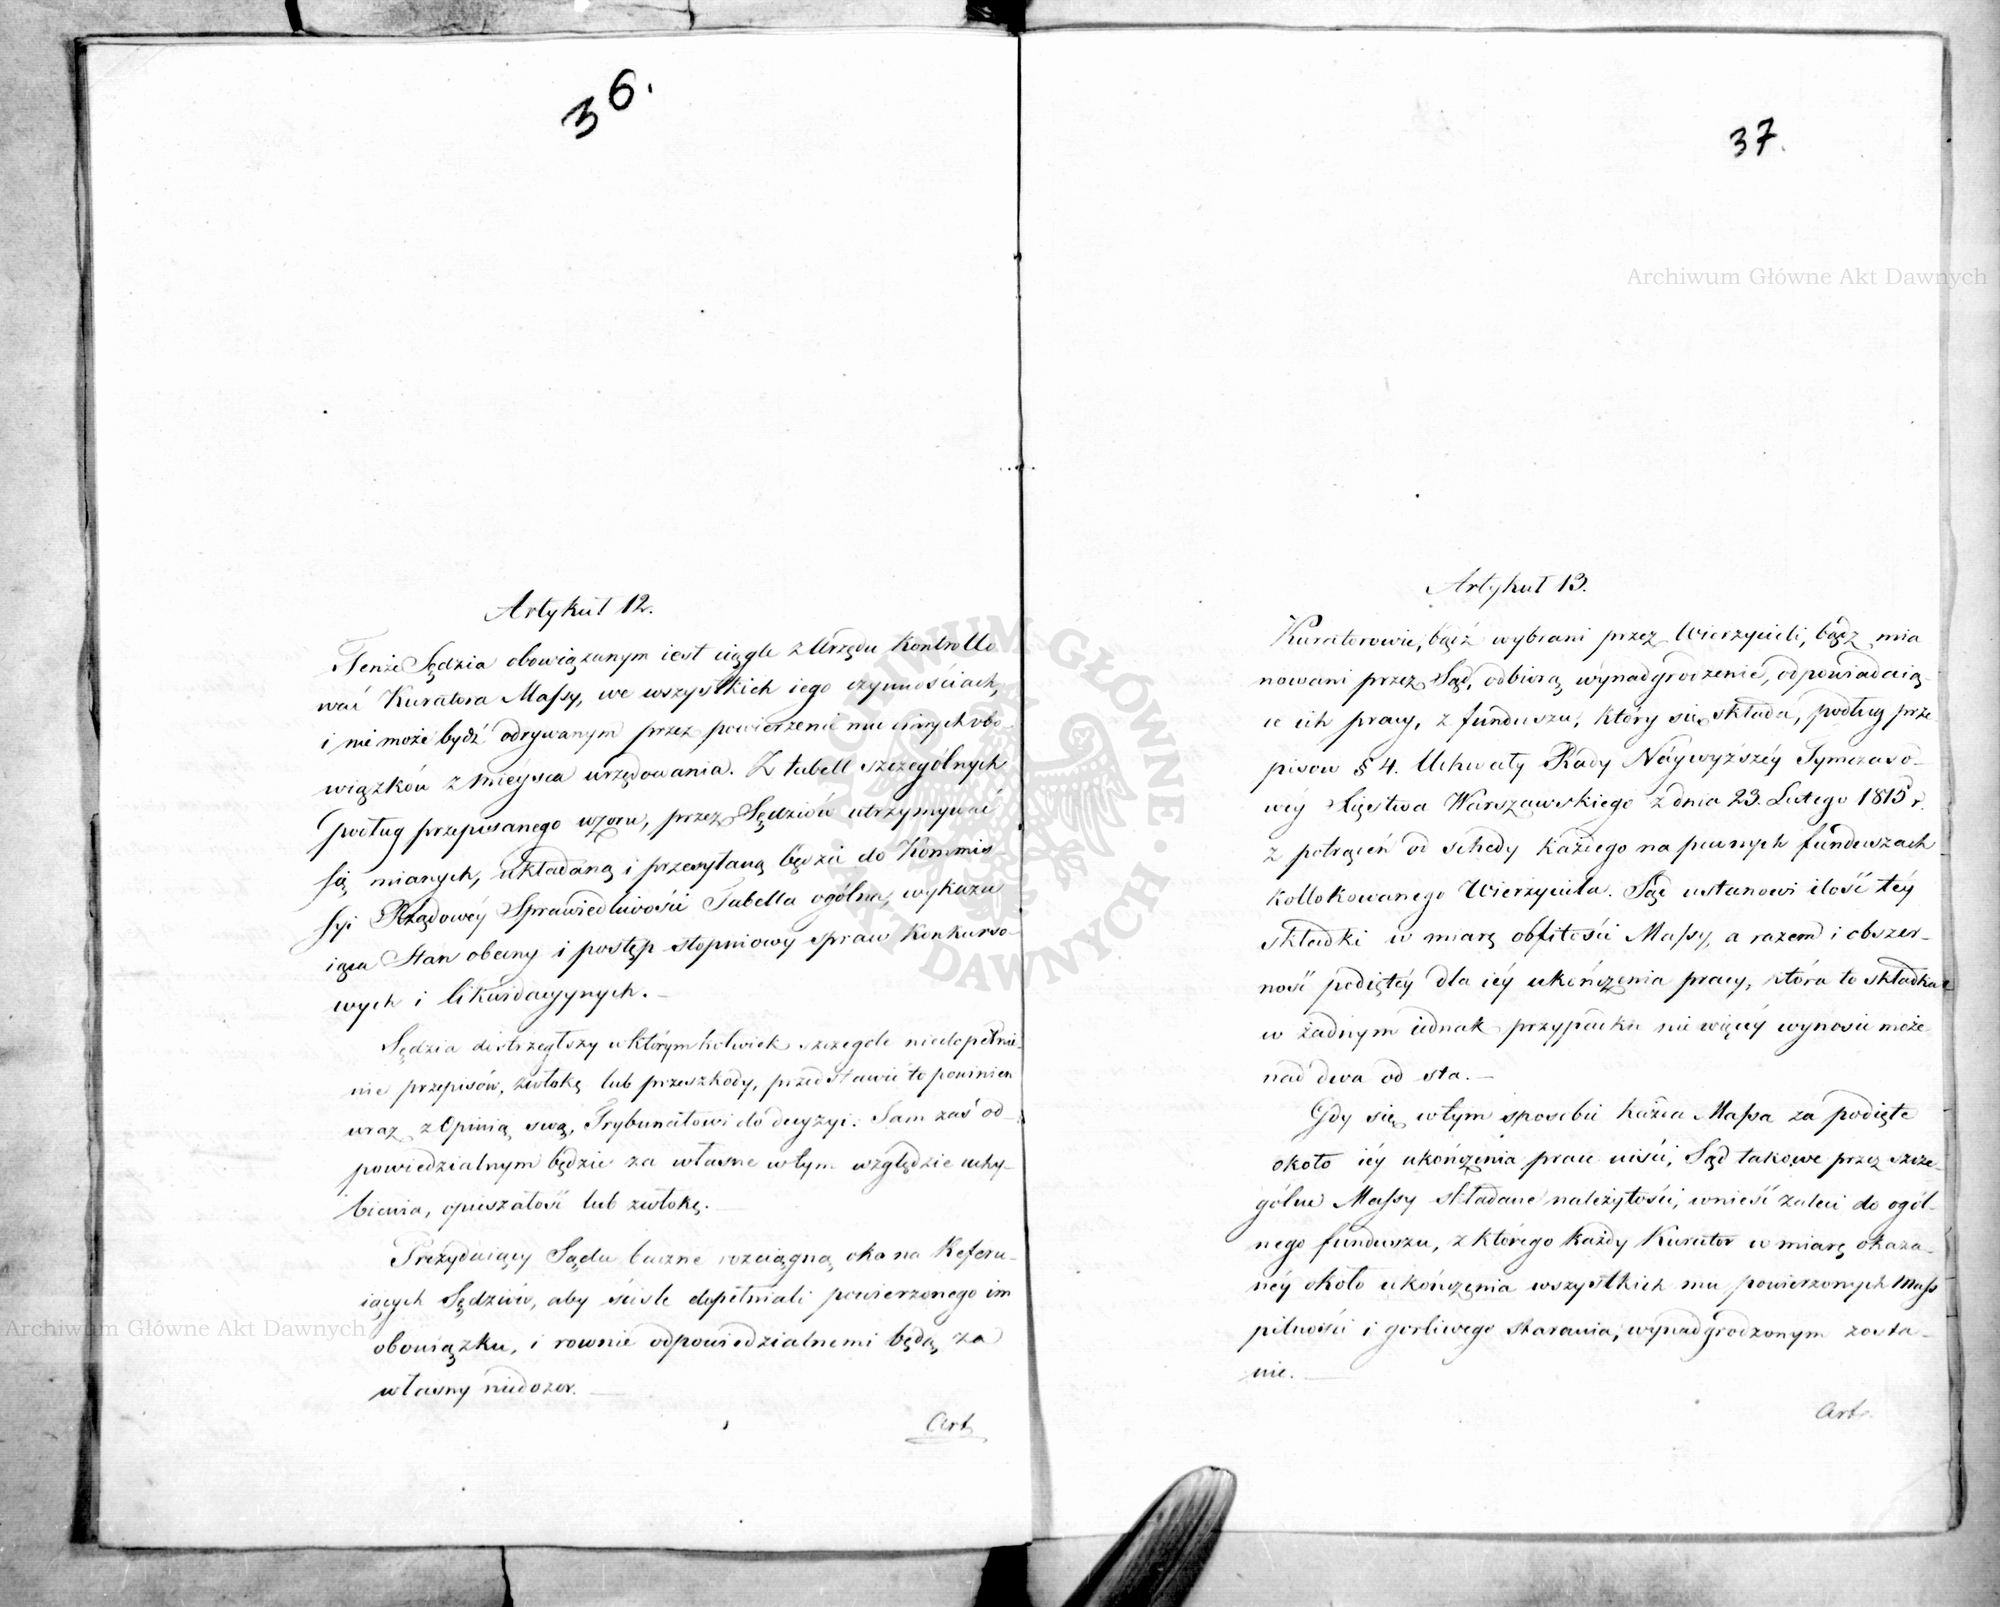 36.
Artykuł 12.
Tenże Sędzia obowiązanym iest ciągle z Urzędu Kontrollo
wać Kuratora Massy, we wszystkich iego czynnościach,
i nie może bydź odrywanym przez powierzenie mu innych obo-
wiązków z mieysca urzędowania. Z tabell szczególnych
podług przepisanego wzoru, przez Sędziów utrzymywać
się mianych, układaną i przesyłaną będzie do Kommis
syi Rządowéy Sprawiedliwości Tabella ogólna, wykazu
iąca Stan obecny i postęp stopniowy spraw Konkurso-
wych i likwidacyynych. —
Sędzia dostrzegłszy w którymkolwiek szczególe niedopełnie-
nie przepisów, zwłokę lub przeszkody, przedstawić to powinien
wraz z Opinią swą, Trybunałowi do decyzyi. Sam zaś od-
powiedzialnym będzie za własne w tym względzie uchy-
bienia, opieszałość lub zwłokę. —
Prezyduiący Sądu baczne rozciągną oko na Referu-
iących Sędziów, aby ściśle dopełniali powierzonego im
obowiązku, i rownie odpowiedzialnemi będą za
własny niedozor. —
Art
37.
Artykuł 13.
Kuratorowie, bądź wybrani przez Wierzycieli, bądz mia
nowani przez Sąd, odbiorą wynadgrodzenie, odpowiadaią-
ce ich pracy, z funduszu, który się składa, podług prze-
pisow § 4. Uchwały Rady Náywyższéy Tymczaso-
wéy Xięstwa Warszawskiego z dnia 23. Lutego 1815 r.
z potrąceń od schedy każdego na pewnych funduszach
kollokowanego Wierzyciela. Sąd ustanowi ilość téy
składki w miarę obfitości Massy, a razem i obszer-
ność podiętéy dla iéy ukończenia pracy, która to składka
w żadnym iednak przypadku nie więcéy wynosić może
nad dwa od sta. —
Gdy się w tym sposobie każda Massa za podięte
około iéy ukończenia prace uiści, Sąd takowe przez szcze-
gólne Massy składane należytości, wnieść zaleci do ogól-
nego funduszu, z którego każdy Kurator w miarę okaza-
néy około ukończenia wszystkich mu powierzonych Mass
pilności i gorliwego starania, wynadgrodzonym zosta-
nie. —
Art.
Archiwum Główne Akt Dawnych
Archiwum Główne Akt Dawnych
ARCHIWUM GŁÓWNE • AKT DAWNYCH •